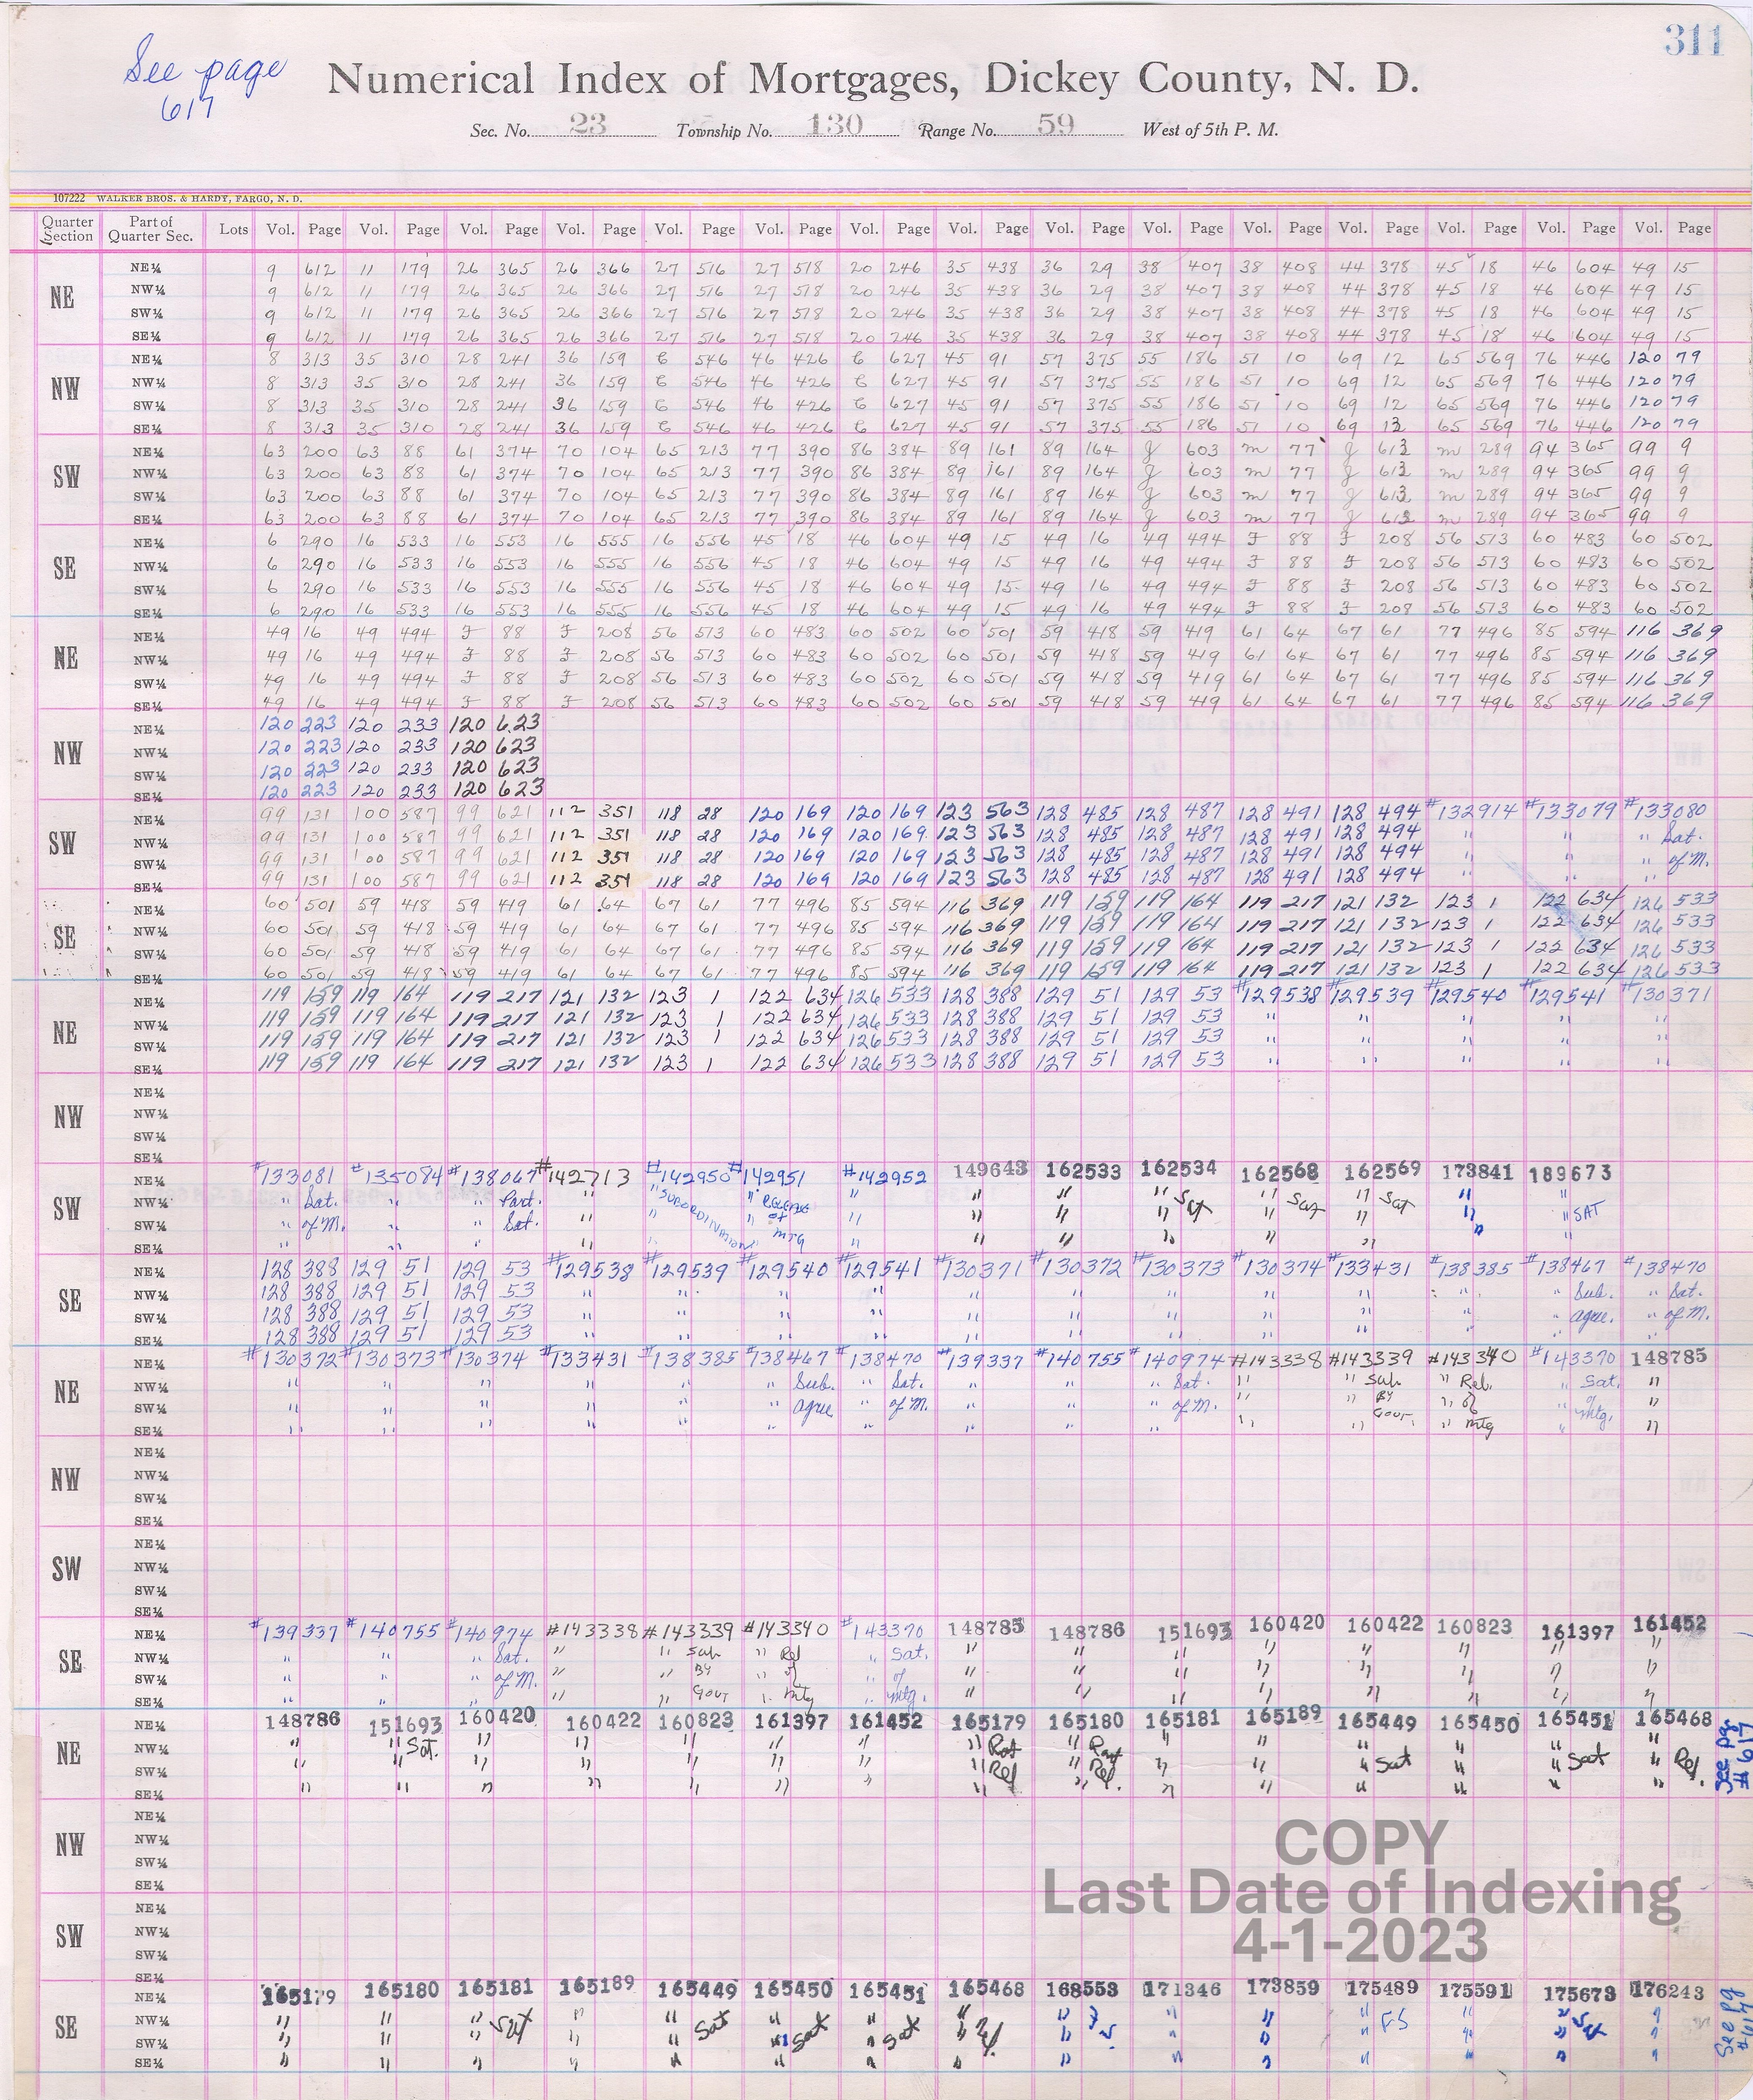 311
See page
617
Numerical Index of Mortgages, Dickey County, N. D.
Sec. No. 23 Township No. 130 Range No. 59 West of 5th P. M.
107222 WALKER BROS. & HARDY, FARGO, N. D.
Quarter Section Part of Quarter Sec. Lots Vol. Page Vol. Page Vol. Page Vol. Page Vol. Page Vol. Page Vol. Page Vol. Page Vol. Page Vol. Page Vol. Page Vol. Page Vol. Page Vol. Page Vol. Page
NE
NE¼ 9 612 11 179 26 365 26 366 27 516 27 518 20 246 35 438 36 29 38 407 38 408 44 378 45 18 46 604 49 15
NW¼ 9 612 11 179 26 365 26 366 27 516 27 518 20 246 35 438 36 29 38 407 38 408 44 378 45 18 46 604 49 15
SW¼ 9 612 11 179 26 365 26 366 27 516 27 518 20 246 35 438 36 29 38 407 38 408 44 378 45 18 46 604 49 15
SE¼ 9 612 11 179 26 365 26 366 27 516 27 518 20 246 35 438 36 29 38 407 38 408 44 378 45 18 46 604 49 15
NW
NE¼ 8 313 35 310 28 241 36 159 546 46 426 627 45 91 57 375 55 186 51 10 69 12 65 569 76 446 120 79
NW¼ 8 313 35 310 28 241 36 159 546 46 426 627 45 91 57 375 55 186 51 10 69 12 65 569 76 446 120 79
SW¼ 8 313 35 310 28 241 36 159 546 46 426 627 45 91 57 375 55 186 51 10 69 12 65 569 76 446 120 79
SE¼ 8 313 35 310 28 241 36 159 546 46 426 627 45 91 57 375 55 186 51 10 69 12 65 569 76 446 120 79
SW
NE¼ 63 200 63 88 61 374 70 104 65 213 77 390 86 384 89 161 89 164 g 603 m 77 g 613 m 289 94 365 99 9
NW¼ 63 200 63 88 61 374 70 104 65 213 77 390 86 384 89 161 89 164 g 603 m 77 g 613 m 289 94 365 99 9
SW¼ 63 200 63 88 61 374 70 104 65 213 77 390 86 384 89 161 89 164 g 603 m 77 g 613 m 289 94 365 99 9
SE¼ 63 200 63 88 61 374 70 104 65 213 77 390 86 384 89 161 89 164 g 603 m 77 g 613 m 289 94 365 99 9
SE
NE¼ 6 290 16 533 16 553 16 555 16 556 45 18 46 604 49 15 49 16 49 494 F 88 F 208 56 513 60 483 60 502
NW¼ 6 290 16 533 16 553 16 555 16 556 45 18 46 604 49 15 49 16 49 494 F 88 F 208 56 513 60 483 60 502
SW¼ 6 290 16 533 16 553 16 555 16 556 45 18 46 604 49 15 49 16 49 494 F 88 F 208 56 513 60 483 60 502
SE¼ 6 290 16 533 16 553 16 555 16 556 45 18 46 604 49 15 49 16 49 494 F 88 F 208 56 513 60 483 60 502
NE
NE¼ 49 16 49 494 F 88 F 208 56 513 60 483 60 502 60 501 59 418 59 419 61 64 67 61 77 496 85 594 116 369
NW¼ 49 16 49 494 F 88 F 208 56 513 60 483 60 502 60 501 59 418 59 419 61 64 67 61 77 496 85 594 116 369
SW¼ 49 16 49 494 F 88 F 208 56 513 60 483 60 502 60 501 59 418 59 419 61 64 67 61 77 496 85 594 116 369
SE¼ 49 16 49 494 F 88 F 208 56 513 60 483 60 502 60 501 59 418 59 419 61 64 67 61 77 496 85 594 116 369
NW
NE¼ 120 223 120 233 120 623
NW¼ 120 223 120 233 120 623
SW¼ 120 223 120 233 120 623
SE¼ 120 223 120 233 120 623
SW
NE¼ 99 131 100 587 99 621 112 351 118 28 120 169 120 169 123 563 128 485 128 487 128 491 128 494 #132914 #133079 #133080
NW¼ 99 131 100 587 99 621 112 351 118 28 120 169 120 169 123 563 128 485 128 487 128 491 128 494 " " " Sat.
SW¼ 99 131 100 587 99 621 112 351 118 28 120 169 120 169 123 563 128 485 128 487 128 491 128 494 " " " of M.
SE¼ 99 131 100 587 99 621 112 351 118 28 120 169 120 169 123 563 128 485 128 487 128 491 128 494 " " "
SE
NE¼ 60 501 59 418 59 419 61 64 67 61 77 496 85 594 116 369 119 159 119 164 119 217 121 132 123 1 122 634 126 533
NW¼ 60 501 59 418 59 419 61 64 67 61 77 496 85 594 116 369 119 159 119 164 119 217 121 132 123 1 122 634 126 533
SW¼ 60 501 59 418 59 419 61 64 67 61 77 496 85 594 116 369 119 159 119 164 119 217 121 132 123 1 122 634 126 533
SE¼ 60 501 59 418 59 419 61 64 67 61 77 496 85 594 116 369 119 159 119 164 119 217 121 132 123 1 122 634 126 533
NE
NE¼ 119 159 119 164 119 217 121 132 123 1 122 634 126 533 128 388 129 51 129 53 #129538 #129539 #129540 #129541 #130371
NW¼ 119 159 119 164 119 217 121 132 123 1 122 634 126 533 128 388 129 51 129 53 " " " " "
SW¼ 119 159 119 164 119 217 121 132 123 1 122 634 126 533 128 388 129 51 129 53 " " " " "
SE¼ 119 159 119 164 119 217 121 132 123 1 122 634 126 533 128 388 129 51 129 53 " " " " "
NW
NE¼
NW¼
SW¼
SE¼
SW
NE¼ #133081 #135084 #138067 #142713 #142950 #142951 #142952 149643 162533 162534 162568 162569 173841 189673
NW¼ " Sat. " " Part. " " SUBORDINATION " RELEASE " " " " Sat " Sat " Sat " "
SW¼ " of M. " " Sat. " " " of " " " " " " " " SAT
SE¼ " " " " " MTG " " " " " " " "
SE
NE¼ 128 388 129 51 129 53 #129538 #129539 #129540 #129541 #130371 #130372 #130373 #130374 #133431 #138385 #138467 #138470
NW¼ 128 388 129 51 129 53 " " " " " " " " " " " Sub. " Sat.
SW¼ 128 388 129 51 129 53 " " " " " " " " " " " agree. " of M.
SE¼ 128 388 129 51 129 53 " " " " " " " " " " " "
NE
NE¼ #130372 #130373 #130374 #133431 #138385 #138467 #138470 #139337 #140755 #140974 #143338 #143339 #143340 #143370 148785
NW¼ " " " " " " Sub. " Sat. " " " Sat. " " Sub " Rel. " Sat. "
SW¼ " " " " " " agree " of M. " " " of M. " " BY " of " of "
SE¼ " " " " " " " " " " " " Govt. " mtg " mtg. "
NW
NE¼
NW¼
SW¼
SE¼
SW
NE¼
NW¼
SW¼
SE¼
SE
NE¼ #139337 #140755 #140974 #143338 #143339 #143340 #143370 148785 148786 151693 160420 160422 160823 161397 161452
NW¼ " " " Sat. " " Sub " Rel " Sat. " " " " " " " "
SW¼ " " " of M. " " BY " of " of " " " " " " " "
SE¼ " " " " " Govt " mtg " mtg. " " " " " " " "
NE
NE¼ 148786 151693 160420 160422 160823 161397 161452 165179 165180 165181 165189 165449 165450 165451 165468
NW¼ " " Sat. " " " " " " " Part " " " " " "
SW¼ " " " " " " " " Rel " Rel. " " " Sat " " Sat " Rel.
SE¼ " " " " " " " " " " " " " " "
See pg # 617
NW
NE¼
NW¼
SW¼
SE¼
SW
NE¼
NW¼
SW¼
SE¼
COPY
Last Date of Indexing
4-1-2023
SE
NE¼ 165179 165180 165181 165189 165449 165450 165451 165468 168553 171346 173859 175489 175591 175673 176243
NW¼ " " " Sat " " " " " " " " " FS " " "
SW¼ " " " " " Sat " Sat " Sat " " " " " " " Sat "
SE¼ " " " " " " " " " " " " " " "
See pg # 617